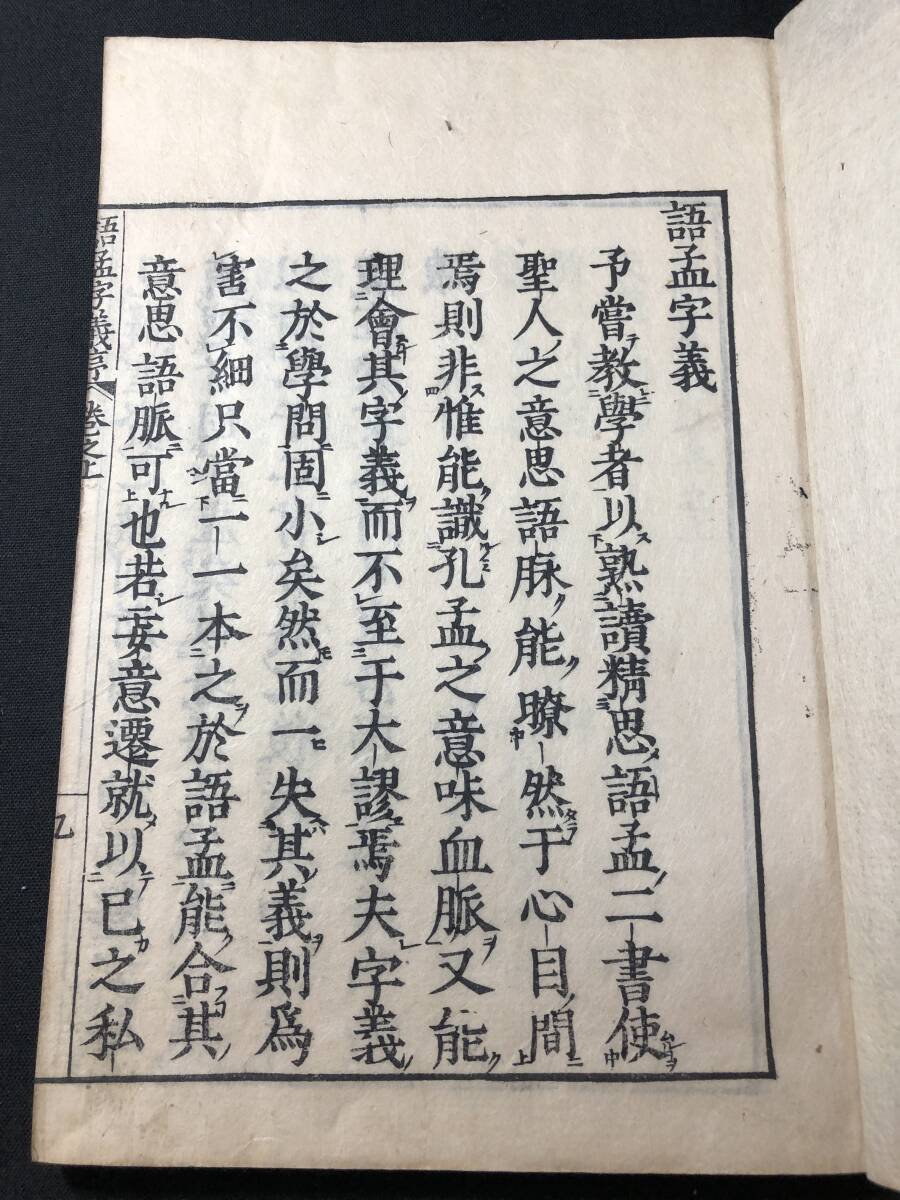 語孟字義
予嘗教學者以熟讀精思語孟二書使
聖人之意思語脉能瞭然于心目間
焉則非惟能識孔孟之意味血脈又能
理會其字義而不至于大謬焉夫字義
之於學問固小矣然而一失其義則爲
害不細只當一一本之於語孟能合其
意思語脈可也若妄意遷就以已之私
語孟字義序 卷之上